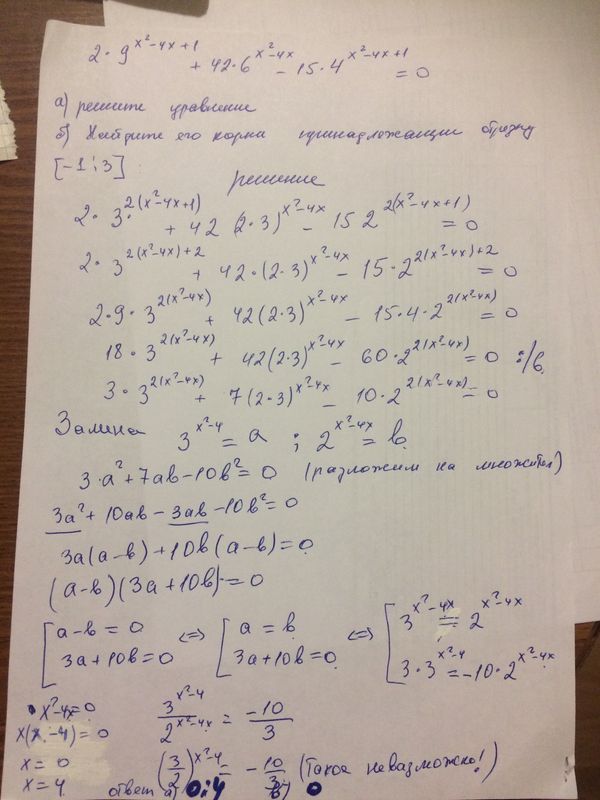 2·9^(x²-4x+1) + 42·6^(x²-4x) - 15·4^(x²-4x+1) = 0
а) решите уравнение
б) Найдите его корни принадлежащии отрезку
[-1;3]
решение
2·3^(2(x²-4x+1)) + 42(2·3)^(x²-4x) - 15 2^(2(x²-4x+1)) = 0
2·3^(2(x²-4x)+2) + 42·(2·3)^(x²-4x) - 15·2^(2(x²-4x)+2) = 0
2·9·3^(2(x²-4x)) + 42(2·3)^(x²-4x) - 15·4·2^(2(x²-4x)) = 0
18·3^(2(x²-4x)) + 42(2·3)^(x²-4x) - 60·2^(2(x²-4x)) = 0 :/6
3·3^(2(x²-4x)) + 7(2·3)^(x²-4x) - 10·2^(2(x²-4x)) = 0
Замина 3^(x²-4) = a ; 2^(x²-4x) = b
3·a²+7ab-10b²=0 (разложим на множител)
3a²+10ab-3ab-10b²=0
3a(a-b)+10b(a-b)=0
(a-b)(3a+10b)=0
[ a-b=0 <=> [ a=b <=> [ 3^(x²-4x) = 2^(x²-4x)
3a+10b=0 3a+10b=0 3·3^(x²-4) = -10·2^(x²-4x)
x²-4x=0 3^(x²-4)/2^(x²-4x) = -10/3
x(x-4)=0
x=0 (3/2)^(x²-4) = -10/3 (такое невазможно!)
x=4 ответ а) 0;4 б) 0